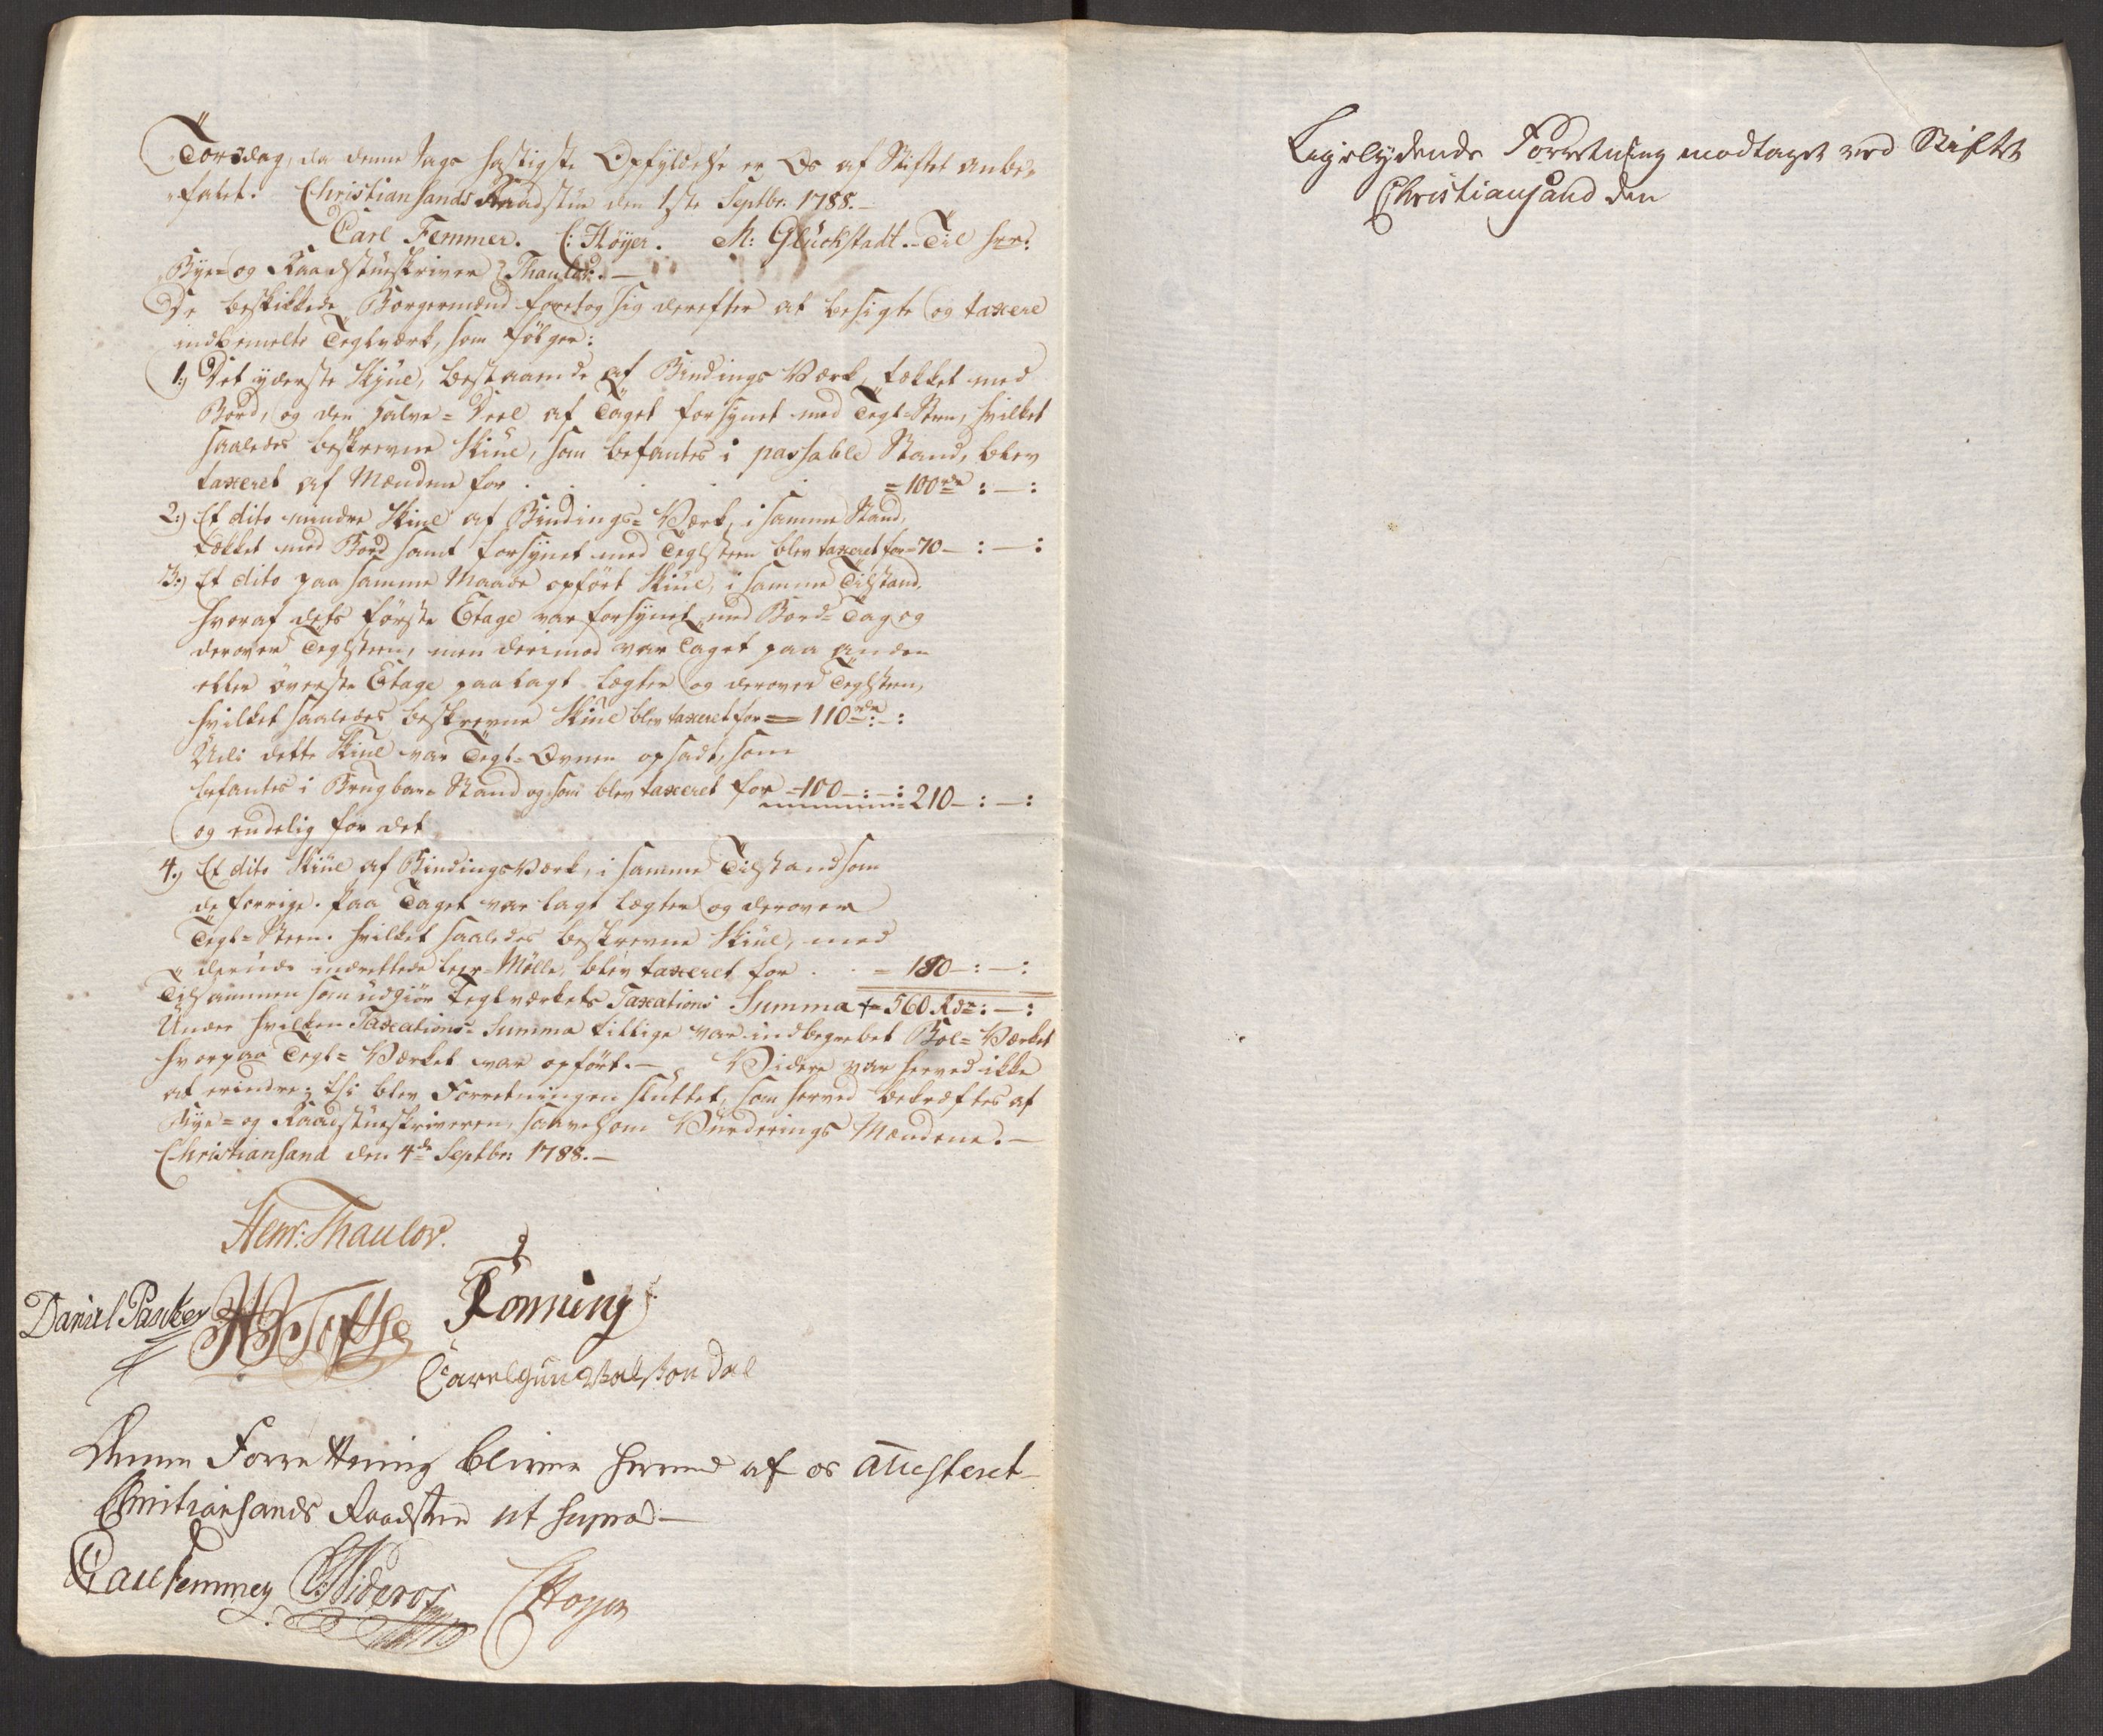 Torsdag, da denne Sags hastigste Opfyldelse er Os af Stiftet anbe-
falet. Christiansands Raadstue den 1ste Septbr: 1788.-
Carl Femmer. C: Höyer. M: Glückstadt.- Til Hrr:
Bye- og Raadstueskriver Thaulov.-
De beskikkede Borgermænd foretog sig derefter at besigte og taxere
indbemelte Teglværk, som fölger:
1:) Det yderste Skiul, bestaaende af Bindings Værk, tækket med
Bord, og den halve-Deel af Taget forsynet med Tegl-Steen, hvilket
saaledes beskrevne Skiul, som befantes i passable Stand, blev
taxeret af Mændene for . . . . = 100 rdr : - :
2:) Et dito mindre Skiul af Bindings-Værk, i samme Stand,
tækket med Bord samt forsynet med Teglsteen blev taxeret for = 70 - : - :
3:) Et dito paa samme Maade opfört Skiul, i samme Tilstand,
hvoraf dets förste Etage var forsynet med Bord-Tag og
derover Teglsteen, men derimod var Taget paa anden
eller överste Etage paalagt Lægter og derover Teglsteen,
hvilket saaledes beskrevne Skiul blev taxeret for = 110 rdr : - :
Udi dette Skiul var Tegl-Ovnen opsadt, som
befantes i Brugbare Stand og som blev taxeret for = 100 - : - : = 210 - : - :
og endelig for det
4:) Et dito Skiul af Bindingsværk, i samme Tilstand som
de forrige. Paa Taget var lagt Lægter og derover
Tegl-Steen. Hvilket saaledes beskrevne Skiul, med
derudi indrettede Leer-Mölle, blev taxeret for . . = 180 - : - :
Tilsammen som udgiör Teglværkets Taxations Summa = 560 Rdr : - :
Under hvilken Taxations-Summa tillige var indbegrebet Bol-Værket
hvorpaa Tegl-Værket var opfört.- Videre var herved ikke
at erindre; thi blev Forretningen sluttet, som herved bekræftes af
Bye- og Raadstueskriveren, saavelsom Vurderings Mændene.-
Christiansand den 4de Septbr: 1788.-
Henr: Thaulov.
Daniel Paucker Tofthe Tönning
Carel Gundvalsson Dal
Denne Forretning bliver herved af os attesteret
Christiansands Raadstue ut supra -
Carl Femmer C: Nideros C Höyer
Ligelydende Forretning modtaget ved Stiftet
Christiansand den